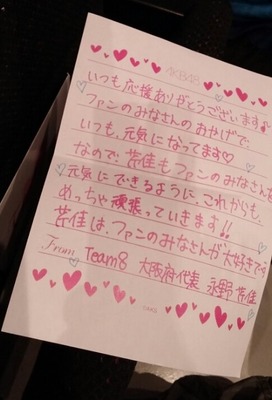 AKB48
いつも応援ありがとうございます♪
ファンのみなさんのおかげで
いつも、元気になってます♡
なので、芹佳もファンのみなさんを
元気にできるように、これからも、
めっちゃ頑張っていきます!!
芹佳は、ファンのみなさんが大好きです
From Team8 大阪府代表 永野芹佳
©AKS